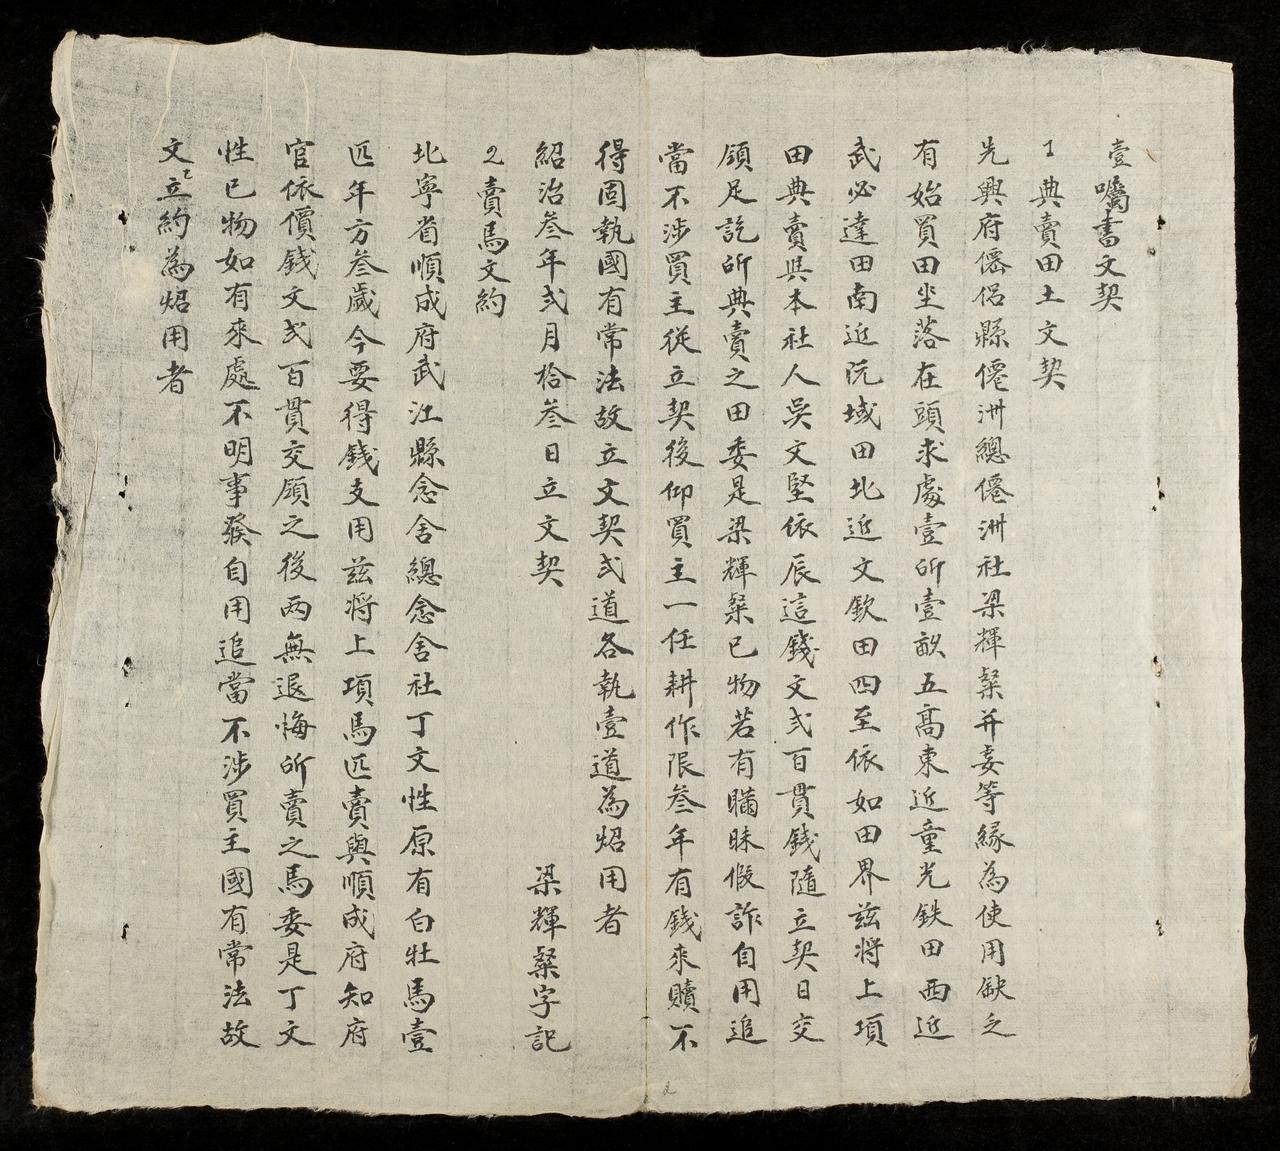 壹囑書文契
1 典賣田土文契
先興府僊侶縣僊洲總僊洲社梁輝粲并妾等緣為使用缺乏
有始買田坐落在頭求處壹所壹畝五高東近童光鉄田西近
武必達田南近阮域田北近文欽田四至依如田界茲將上項
田典賣與本社人吳文堅依辰這錢文弍百貫錢隨立契日交
領足訖所典賣之田委是梁輝粲已物若有瞞昧假詐自用追
當不涉買主從立契後仰買主一任耕作限叁年有錢來贖不
得固執國有常法故立文契弍道各執壹道為炤用者
紹治叁年弍月拾叁日立文契 梁輝粲字記
2 賣馬文約
北寧省順成府武江縣念舍總念舍社丁文性原有白牡馬壹
匹年方叁歲今要得錢支用茲將上項馬匹賣與順成府知府
官依價錢文弍百貫交領之後两無退悔所賣之馬委是丁文
性已物如有來處不明事發自用追當不涉買主國有常法故
文立約為炤用者
2